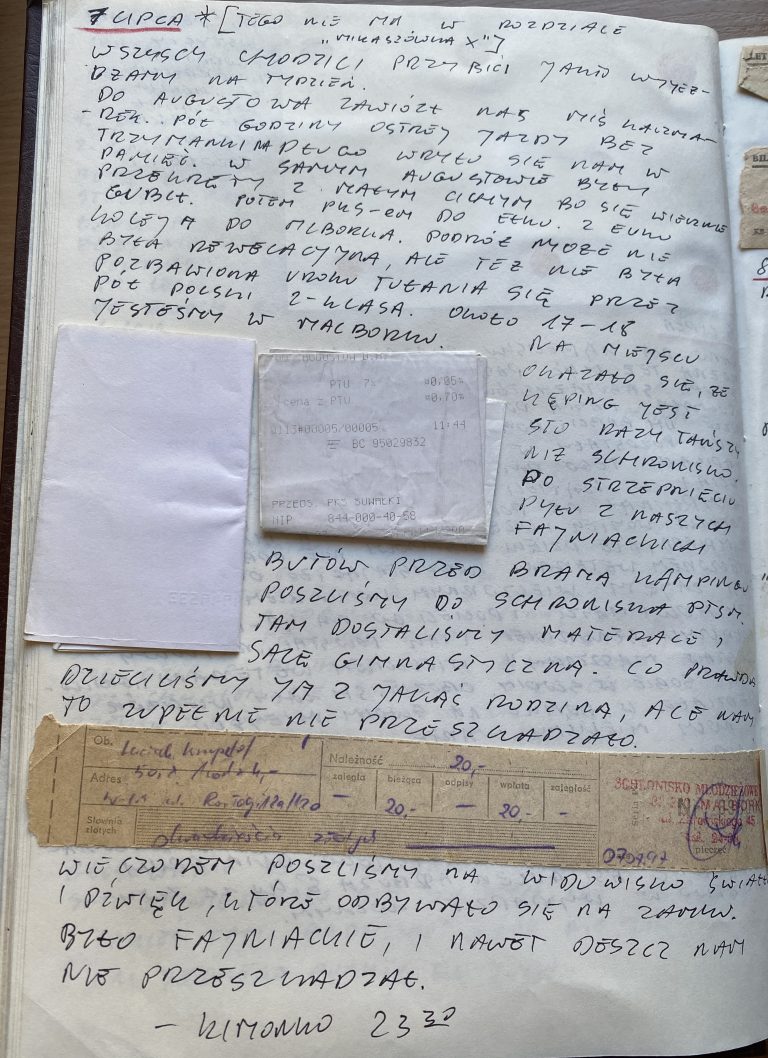 7 LIPCA * [TEGO NIE MA W ROZDZIALE
"MIKASZÓWKA X"]
WSZYSCY CHODZILI PRZYBICI JAKO WYJEŻ-
DŻAMY NA TYDZIEŃ.
DO AUGUSTOWA ZAWIÓZŁ NAS MIŚ KACZMA-
-REK. PÓŁ GODZINY OSTREJ JAZDY BEZ
TRZYMANKI NA DŁUGO WRYŁO SIĘ NAM W
PAMIĘĆ. W SAMYM AUGUSTOWIE BYŁY
PRZEKRĘTY Z MAŁYM CICHYM BO SIĘ WIECZNIE
GUBIŁ. POTEM PKS-EM DO EŁKU. Z EŁKU
KOLEJĄ DO MLBORKA. PODRÓŻ MOŻE NIE
BYŁA REWELACYJNA, ALE TEŻ NIE BYŁA
POZBAWIONA UROKU TUŁANIA SIĘ PRZEZ
PÓŁ POLSKI 2-KLASĄ. OKOŁO 17-18
JESTEŚMY W MALBORKU.
NA MIEJSCU
OKAZAŁO SIĘ, ŻE
KĘPING JEST
STO RAZY TAŃSZY
NIŻ SCHRONISKO.
PO STRZEPNIĘCIU
PYŁU Z NASZYCH
FAJNIACKICH
PTU 7% ¤0,05¤
cena z PTU ¤0,70¤
0113#00005/00005 11:44
BC 95029832
PRZEDS. PKS SUWAŁKI
NIP 844-000-40-58
BUTÓW PRZED BRAMĄ KAMPINGU
POSZLIŚMY DO SCHRONISKA PTSM.
TAM DOSTALIŚMY MATERACE I
SALĘ GIMNASTYCZNĄ. CO PRAWDA
DZIELILIŚMY JĄ Z JAKĄŚ RODZINĄ, ALE NAM
TO ZUPEŁNIE NIE PRZESZKADZAŁO.
Ob.
Adres
Słownie złotych dwadzieścia złotych
Należność 20,-
zaległa bieżąca odpisy wpłata zaległość
- 20,- - 20,- -
SCHRONISKO MŁODZIEŻOWE
MALBORK
pieczęć
070797
WIECZOREM POSZLIŚMY NA WIDOWISKO ŚWIATŁO
I DŹWIĘK, KTÓRE ODBYWAŁO SIĘ NA ZAMKU.
BYŁO FAJNIACKIE, I NAWET DESZCZ NAM
NIE PRZESZKADZAŁ.
- KIMONKO 23 30